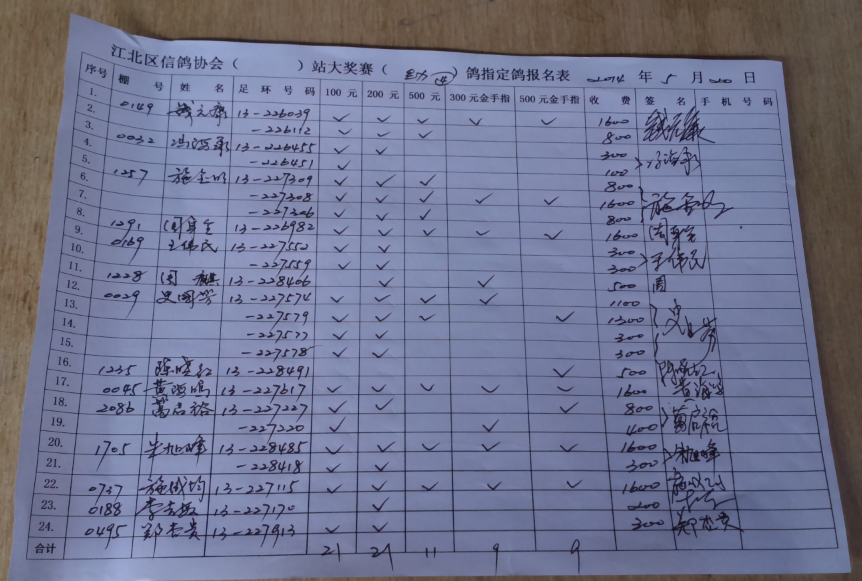 江北区信鸽协会（ ）站大奖赛（ ）鸽指定鸽报名表 2014 年 5 月 20 日
序号 棚 号 姓 名 足 环 号 码 100 元 200 元 500 元 300元金手指 500元金手指 收 费 签 名 手 机 号 码
1. 0149 13-226039 ✓ ✓ ✓ ✓ ✓ 1600
2. -226112 ✓ ✓ ✓ 800
3. 0032 13-226455 ✓ ✓ 300
4. -226451 ✓ 100
5. 1257 施金明 13-227309 ✓ ✓ ✓ 800
6. -227308 ✓ ✓ ✓ ✓ ✓ 1600
7. -227306 ✓ ✓ ✓ 800
8. 1291 13-226982 ✓ ✓ ✓ ✓ ✓ 1600
9. 0169 王伟民 13-227552 ✓ ✓ 300 王伟民
10. -227559 ✓ ✓ 300
11. 1228 周 麒 13-228406 ✓ ✓ 500 周
12. 0029 13-227574 ✓ ✓ ✓ ✓ 1100
13. -227579 ✓ ✓ ✓ ✓ 1300
14. -227577 ✓ ✓ 300
15. -227578 ✓ ✓ 300
16. 1235 陈晓红 13-228491 ✓ 500
17. 0045 黄海鸣 13-227617 ✓ ✓ ✓ ✓ ✓ 1600
18. 2086 葛启裕 13-227227 ✓ ✓ ✓ 800 葛启裕
19. -227220 ✓ ✓ 400
20. 1705 朱旭峰 13-228485 ✓ ✓ ✓ ✓ ✓ 1600 朱旭峰
21. -228418 ✓ ✓ 300
22. 0737 13-227115 ✓ ✓ ✓ ✓ ✓ 1600
23. 0188 13-227170 ✓ 200
24. 0495 郑杏贵 13-227913 ✓ ✓ 300 郑杏贵
合计 21 21 11 9 9